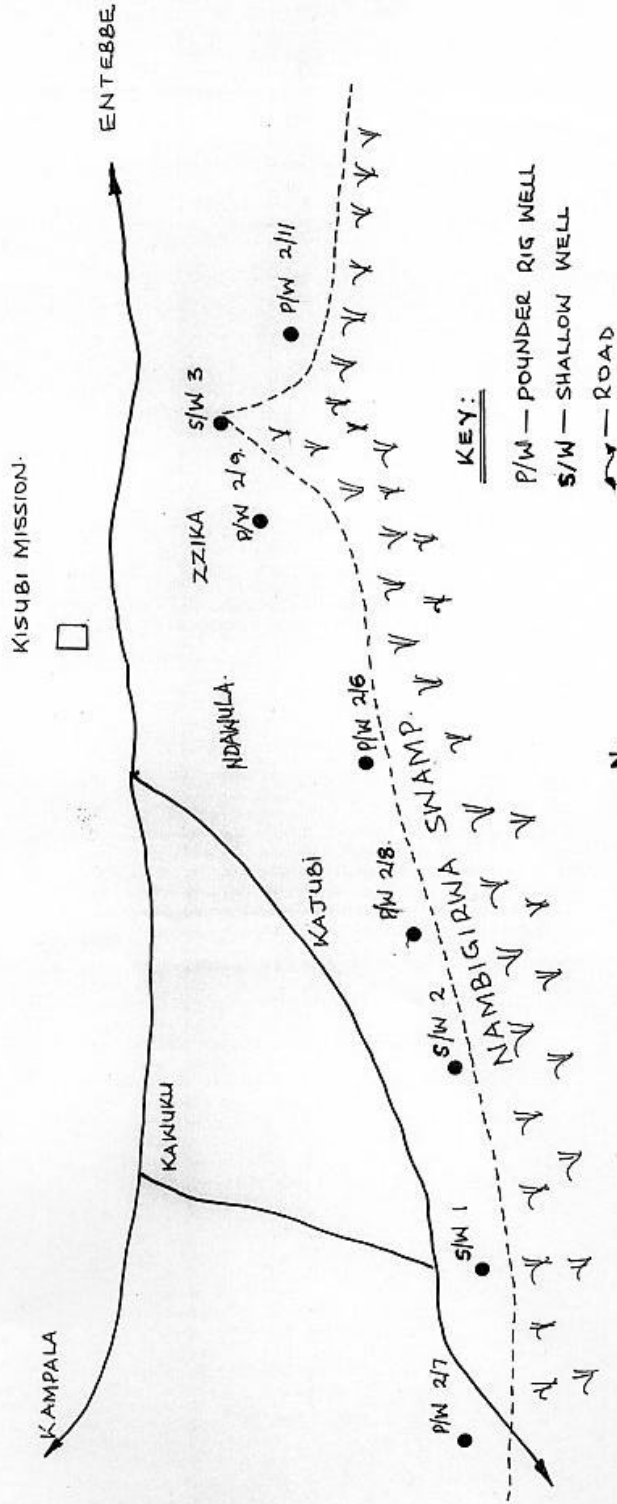 KISUBI MISSION.
ENTEBBE
KAMPALA
KAWUKU
KAJUBI
NDAWULA.
ZZIKA
S/W 3
P/W 2/9.
P/W 2/11
P/W 2/6
P/W 2/8.
S/W 2
S/W 1
P/W 2/7
NAMBIGIRWA SWAMP.
KEY:
P/W — POUNDER RIG WELL
S/W — SHALLOW WELL
— ROAD